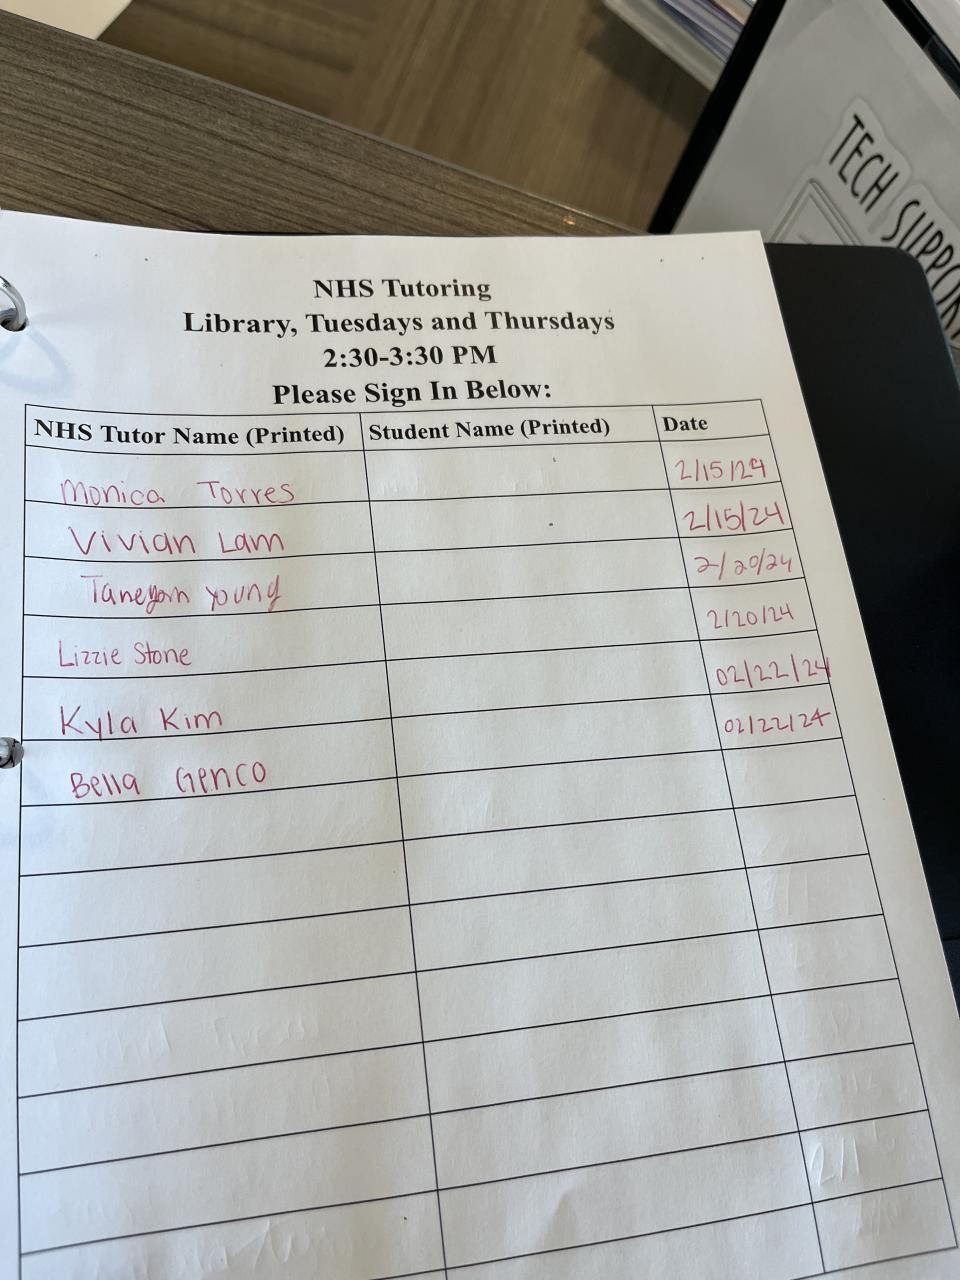 TECH SUPPORT
NHS Tutoring
Library, Tuesdays and Thursdays
2:30-3:30 PM
Please Sign In Below:
NHS Tutor Name (Printed) Student Name (Printed) Date
Monica Torres 2/15/24
Vivian Lam 2/15/24
Young 2/20/24
Lizzie Stone 2/20/24
Kyla Kim 02/22/24
Bella Genco 02/22/24